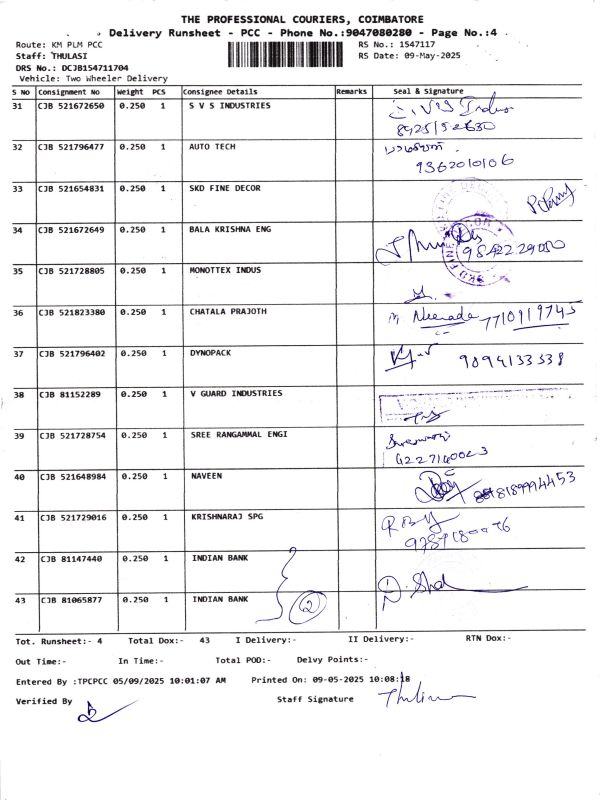 THE PROFESSIONAL COURIERS, COIMBATORE
Delivery Runsheet - PCC - Phone No.:9047080280 - Page No.:4
Route: KM PLM PCC RS No.: 1547117
Staff: THULASI RS Date: 09-May-2025
DRS No.: DCJB154711704
Vehicle: Two Wheeler Delivery
S No Consignment No Weight PCS Consignee Details Remarks Seal & Signature
31 CJB 521672650 0.250 1 S V S INDUSTRIES
32 CJB 521796477 0.250 1 AUTO TECH
9362010106
33 CJB 521654831 0.250 1 SKD FINE DECOR
34 CJB 521672649 0.250 1 BALA KRISHNA ENG
35 CJB 521728805 0.250 1 MONOTTEX INDUS
36 CJB 521823380 0.250 1 CHATALA PRAJOTH
7710119745
37 CJB 521796402 0.250 1 DYNOPACK 9094133538
38 CJB 81152289 0.250 1 V GUARD INDUSTRIES
39 CJB 521728754 0.250 1 SREE RANGAMMAL ENGI
40 CJB 521648984 0.250 1 NAVEEN
41 CJB 521729016 0.250 1 KRISHNARAJ SPG
42 CJB 81147440 0.250 1 INDIAN BANK
43 CJB 81065877 0.250 1 INDIAN BANK 2
Tot. Runsheet:- 4 Total Dox:- 43 I Delivery:- II Delivery:- RTN Dox:-
Out Time:- In Time:- Total POD:- Delvy Points:-
Entered By :TPCPCC 05/09/2025 10:01:07 AM Printed On: 09-05-2025 10:08:18
Verified By Staff Signature